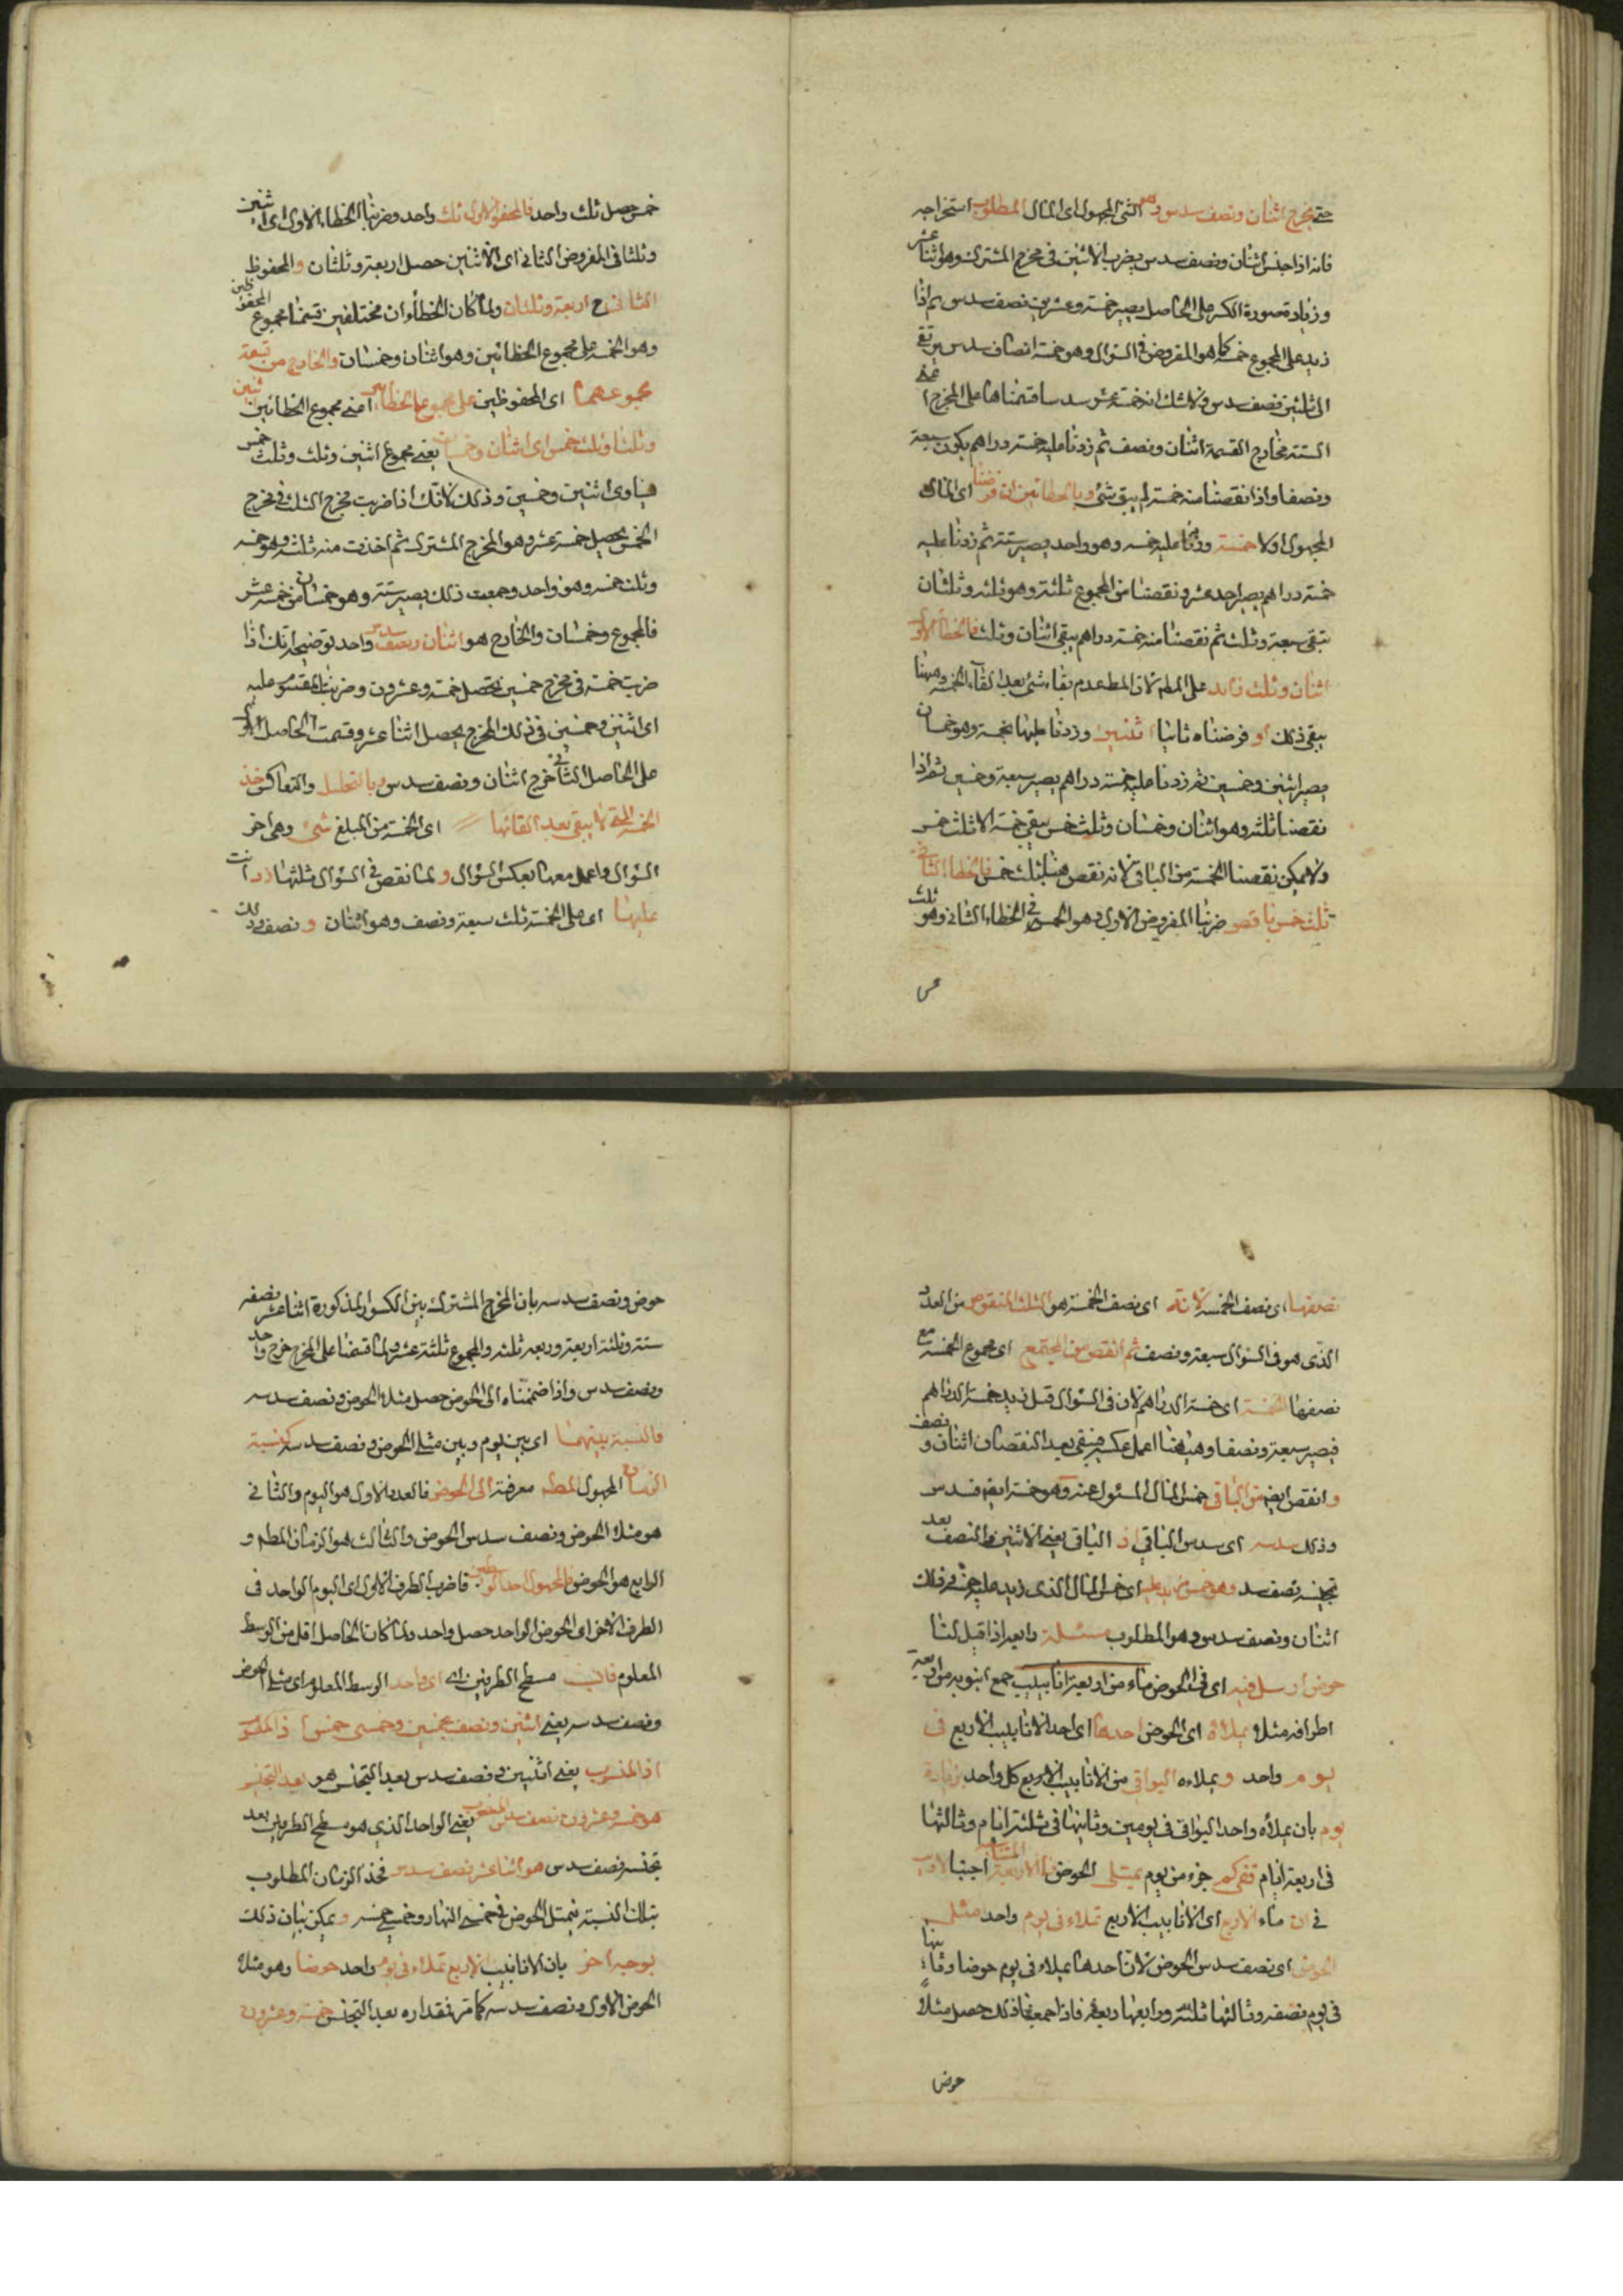 حتى يخرج اثنان ونصف سدس وهو الشئ المجهول اى المال المطلوب استخراجه
فانه اذا جنس اثنان ونصف سدس بضرب الاثنين فى مخرج المشترك وهو اثنا عشر
وزيادة صورة الكسر على الحاصل يصير خمسة وعشرين نصف سدس ثم اذا
زيد على المجموع خمسه كما هو المفروض فى السؤال وهو خمسة انصاف سدس يرتقى
الى ثلثين نصف سدس ولا شك انه خمسة عشر سدسا قسمناها على المخرج
الستة فخارج القسمة اثنان ونصف ثم زدنا عليه خمسة دراهم يكون سبعة
ونصفا واذا نقصنا منه خمسة لم يبق شئ وبالخطائين ان فرضنا اى المال
المجهول اولا خمسة وزدنا عليه خمسه وهو واحد يصير ستة ثم زدنا عليه
خمسة دراهم يصير احد عشر ونقصنا من المجموع ثلثه وهو ثلثه وثلثان
تبقى سبعة وثلث ثم نقصنا منه خمسة دراهم يبقى اثنان وثلث فالخطأ الاول
اثنان وثلث زايد على المط لان المط عدم بقاء شئ بعد القاء الخمسة وههنا
يبقى ذلك او فرضناه ثانيا اثنين وزدنا عليها خمسه وهو خمسان
يصير اثنين وخمسين ثم زدنا عليه خمسة دراهم يصير سبعة وخمسين ثم اذا
نقصنا ثلثه وهو اثنان وخمسان وثلث خمس يبقى خمسة الا ثلث خمس
ولا يمكن نقصنا الخمسة من الباقى لانه نقص منها بثلث خمس فالخطا الثانى
ثلث خمس ناقص ضربنا المفروض الاول وهو الخمس فى الخطاء الثانى وهو ثلث
خمس
خمس حصل ثلث واحد فالمحفوظ الاول ثلث واحد وضربنا الخطاء الاول اى اثنين
وثلثا فى المفروض الثانى اى الاثنين حصل اربعة وثلثان والمحفوظ
الثانى ح اربعة وثلثان ولما كان الخطاءان مختلفين قسمنا مجموع المحفوظين
وهو الخمسة على مجموع الخطائين وهو اثنان وخمسان والخارج من قسمة
مجموعهما اى المحفوظين على مجموع الخطائين اعنى مجموع الخطائين اثنين
وثلثا وثلث خمس اى اثنان وخمسان يعنى مجموع اثنين وثلث وثلث خمس
يساوى اثنين وخمسين وذلك لانك اذا ضربت مخرج الثلث فى مخرج
الخمس يحصل خمسة عشر وهو المخرج المشترك ثم اخذت منه ثلثه وهو خمسه
وثلث خمسه وهو واحد وجمعت ذلك يصير ستة وهو خمسان من خمسة عشر
فالمجموع وخمسان والخارج هو اثنان ونصف سدس واحد توضيحه انك اذا
ضربت خمسة فى مخرج خمسين تحصل خمسة وعشرون وضربنا المقسوم عليه
اى اثنين وخمسين فى ذلك المخرج يحصل اثنا عشر وقسمت الحاصل الاول
على الحاصل الثانى خرج اثنان ونصف سدس وبالتحليل والتعاكس خذ
الخمسة التى لا يبقى بعد القائها اى الخمسة من المبلغ شئ وهى اخر
السؤال واعمل معها بعكس السؤال ولما نقص فى السؤال ثلثها زد انت
عليها اى على الخمسة ثلث سبعة ونصف وهو اثنان ونصف وذلك
نصفها اى نصف الخمسه لانه اى نصف الخمسة هو الثلث المنقوص من العدد
الذى هو فى السؤال سبعة ونصف ثم انقص من المجتمع اى مجموع الخمسة مع
نصفها الخمسة اى خمسة الدراهم لان فى السؤال قيل زيد خمسة الدراهم
فيصير سبعة ونصفا وههنا اعمل عكسه فيبقى بعد النقصان اثنان ونصف
وانقص ايضا من الباقى خمس المال المسئول عنه وهو خمسة ايضا سدس
وذلك سدسه اى سدس الباقى اذ الباقى يعنى الاثنين والنصف بعد
تجنيسه نصف سد وهو خمس مزيد عليه اى خمس المال الذى زيد عليه خمسه فذلك
اثنان ونصف سدس وهو المطلوب مسئلة رابعة اذا قيل لنا
حوض ارسل فيه اى فى الحوض ماء من اربعة انابيب جمع انبوبه من اربعة
اطرافه مثلا يملاه اى الحوض احدها اى احد الانابيب الاربع فى
يوم واحد ويملاءه البواقى من الانابيب الاربع كل واحد بزيادة
يوم بان يملأه واحد البواقى فى يومين وثانيها فى ثلثة ايام وثالثها
فى اربعة ايام ففى كم جزء من يوم يمتلى الحوض فالاربعة المتناسبة اجبنا لاريب
فى ان ماء الاربع اى الانابيب الاربع تملاء فى يوم واحد مثلى
الحوض اى نصف سدس الحوض لان احدها يملاء فى يوم حوضا وثانيها
فى يوم نصفه وثالثها ثلثه ورابعها ربعه فاذا جمعنا ذلك حصل مثلا
حوض
حوض ونصف سدسه بان المخرج المشترك بين الكسور المذكورة اثنا عشر نصفه
ستة وثلثه اربعة وربعه ثلثه والمجموع ثلثة عشر ولما قسمنا على المخرج خرج واحد
ونصف سدس واذا ضممناه الى الحوض حصل مثلا الحوض ونصف سدسه
فالنسبة بينهما اى بين يوم وبين مثلى الحوض ونصف سدسه كنسبة
الزمان المجهول المط معرفته الى الحوض فالعدد الاول هو اليوم والثانى
هو مثلا الحوض ونصف سدس الحوض والثالث هو الزمان المطه و
الرابع هو الحوض فالمجهول احد الوسطين فاضرب الطرف الاول اى اليوم الواحد فى
الطرف الاخر اى الحوض الواحد حصل واحد ولما كان الحاصل اقل من الوسط
المعلوم فانسب مسطح الطرفين الى اى واحد الوسط المعلوم اى مثلى الحوض
ونصف سدسه يعنى اثنين ونصف بخمسين وخمسى خمس اذ المنسوب
اذ المنسوب يعنى اثنين ونصف سدس بعد التجنيس هو بعد التجنيس
هو خمسة وعشرون نصف سدس المنسوب يعنى الواحد الذى هو مسطح الطرفين بعد
تجنسه نصف سدس هو اثنا عشر نصف سدس فخذ الزمان المطلوب
بتلك النسبة يمتلى الحوض فى خمسى النهار وخمسى خمسه ويمكن بيان ذلك
بوجه اخر بان الانابيب الاربع تملاء فى يوم واحد حوضا وهو مثلا
الحوض الاول ونصف سدسه كما مر فمقداره بعد التجنس خمسة وعشرون